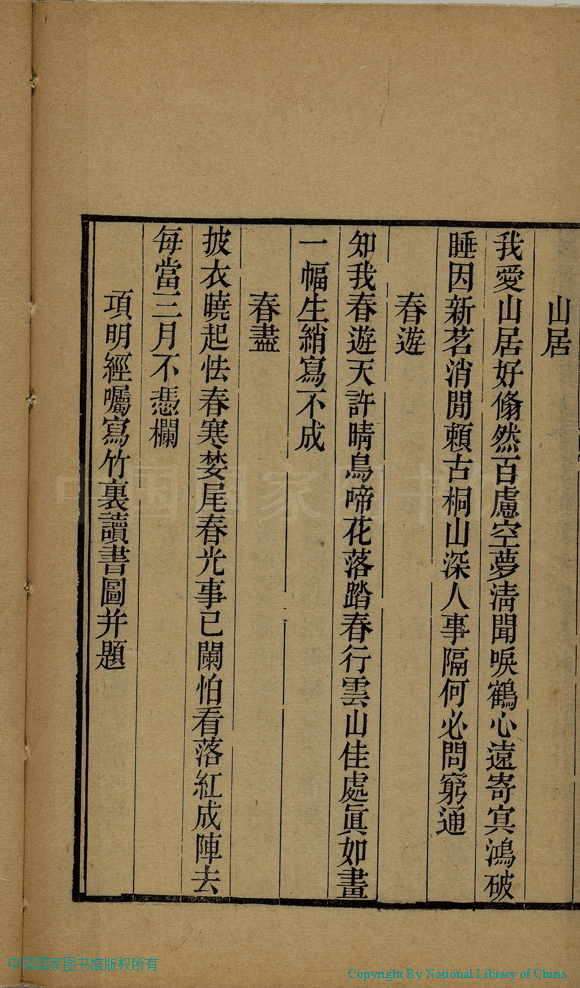 山居
我愛山居好翛然百慮空夢淸聞唳鶴心遠寄冥鴻破
睡因新茗消閒頼古桐山深人事隔何必問窮通
春遊
知我春遊天許晴鳥啼花落踏春行雲山佳處眞如畫
一幅生綃寫不成
春盡
披衣曉起怯春寒婪尾春光事已闌怕看落紅成陣去
每當三月不憑欄
項明經囑寫竹裏讀書圖并題
中国国家图书馆
中国国家图书馆版权所有
Copyright By National Library of China